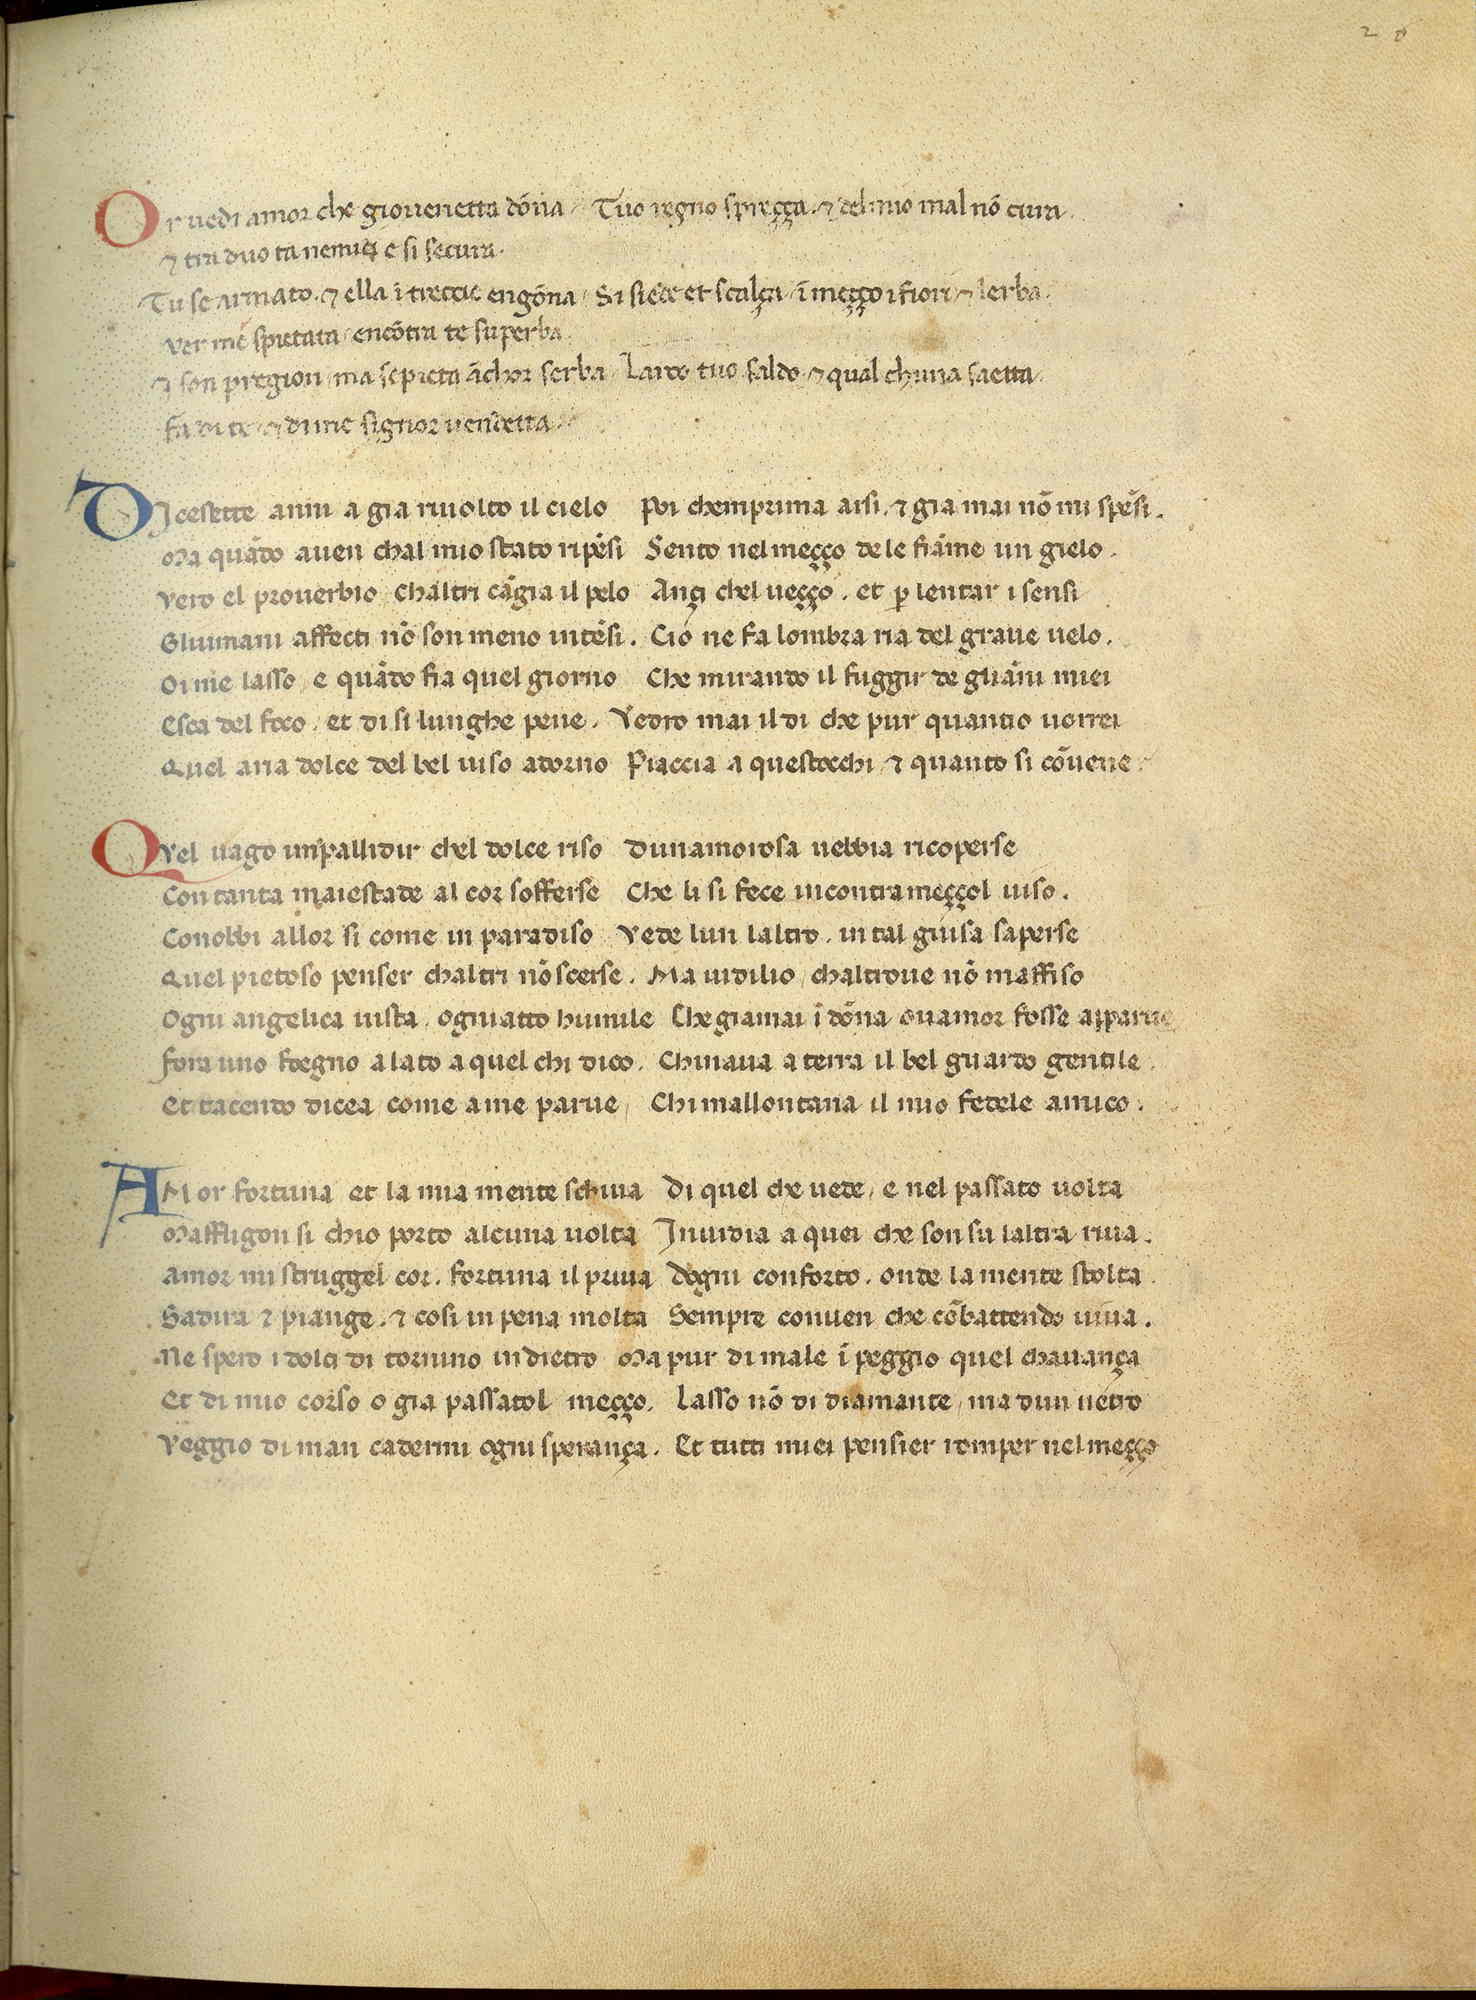 26
Or uedi amor che giouenetta dōna / Tuo regno spreçça. ⁊ delmio mal nō cura.
⁊ tra duo ta nemici e si secura.
Tu se armato. ⁊ ella ī treccie en gōna / Si siede et scalça / ī meçço i fiori ⁊ lerba.
ver me spietata / encōtra te superba.
I son pregion / ma se pieta āchor serba / Larco tuo saldo. ⁊ qual chuna saetta.
fa di te ⁊ di me signor uendetta.
DIcesette anni a gia riuolto il cielo Poi chemprima arsi. ⁊ gia mai nō mi spēsi.
Ma quādo auen chal mio stato ripēsi Sento nel meçço de le fiāme un gielo.
Vero el prouerbio / chaltri cāgia il pelo Ançi chel ueçço. et ꝑ lentar i sensi
Gliumani affecti nō son meno intēsi. Cio ne fa lombra ria del graue uelo.
Oi me lasso / e quādo fia quel giorno Che mirando il fuggir de gliāni miei
Esca del foco. et di si lunghe pene. Vedro mai il di che pur quantio uorrei
Quel aria dolce del bel uiso adorno Piaccia a questocchi / ⁊ quanto si cōuene.
QVel uago impallidir chel dolce riso Dunamorosa nebbia ricoperse
Con tanta maiestade al cor sofferse Che li si fece incontrameççol uiso.
Conobbi allor si come in paradiso Vede lun laltro. in tal guisa saperse
Quel pietoso penser chaltri nō scerse. Ma uidilio / chaltroue nō maffiso
Ogni angelica uista. ogniatto humile Che giamai ī dōna ouamor fosse apparue
Fora uno sdegno a lato a quel chi dico. Chinaua a terra il bel guardo gentile.
Et tacendo dicea / come a me parue / Chi mallontana il mio fedele amico.
AMor fortuna et la mia mente schiua Di quel che uede / e nel passato uolta
Maffligon si chio porto alcuna uolta Inuidia a quei che son su laltra riua.
Amor mi struggel cor. fortuna il priua dogni conforto. onde la mente stolta.
Sadira ⁊ piange. ⁊ cosi in pena molta Sempre conuen che cōbattendo uiua.
Ne spero i dolci di tornino indietro Ma pur di male ī peggio quel chauança
Et di mio corso o gia passatol meçço. Lasso nō di diamante / ma dun uetro
Veggio di man cadermi ogni sperança. Et tutti miei pensier romper nel meçço